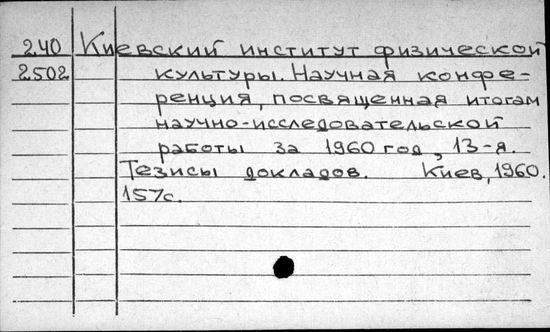 240 Киевский институт физической
2502 культуры. Научная конфе-
ренция, посвященная итогам
научно-исследовательской
работы за 1960 год, 13-я.
Тезисы докладов. Киев, 1960.
157с.